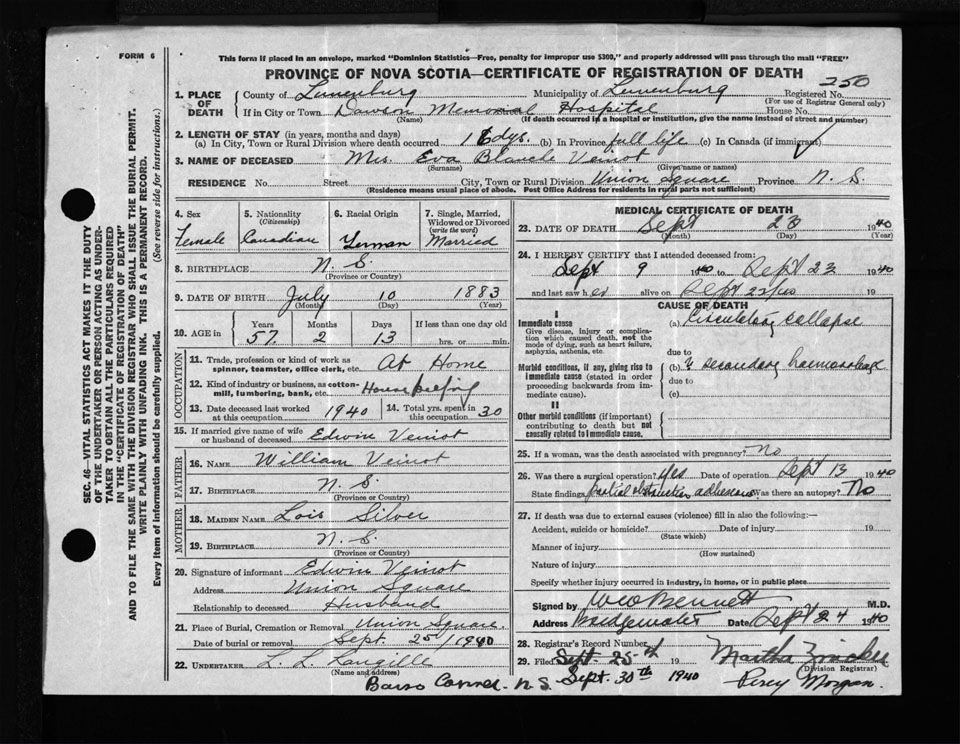 FORM 6
This form if placed in an envelope, marked "Dominion Statistics—Free, penalty for improper use $300," and properly addressed will pass through the mail "FREE"
PROVINCE OF NOVA SCOTIA—CERTIFICATE OF REGISTRATION OF DEATH
250
1. PLACE OF DEATH County of Lunenburg Municipality of Lunenburg Registered No.
(For use of Registrar General only)
If in City or Town Dawson Memorial Hospital House No.
(Name) (If death occurred in a hospital or institution, give the name instead of street and number)
2. LENGTH OF STAY (in years, months and days)
(a) In City, Town or Rural Division where death occurred dys. (b) In Province full life (c) In Canada (if immigrant)
3. NAME OF DECEASED Mrs. Eva Blanche Veinot
(Surname) (Given name or names)
RESIDENCE No. Street City, Town or Rural Division Union Square Province N. S.
(Residence means usual place of abode. Post Office Address for residents in rural parts not sufficient)
4. Sex Female
5. Nationality (Citizenship) Canadian
6. Racial Origin German
7. Single, Married, Widowed or Divorced (write the word) Married
8. BIRTHPLACE N. S.
(Province or Country)
9. DATE OF BIRTH July 10 1883
(Month) (Day) (Year)
10. AGE in Years Months Days If less than one day old
57 2 13 hrs. or min.
OCCUPATION
11. Trade, profession or kind of work as spinner, teamster, office clerk, etc. At Home
12. Kind of industry or business, as cotton-mill, lumbering, bank, etc. House keeping
13. Date deceased last worked at this occupation 1940 14. Total yrs. spent in this occupation 30
15. If married give name of wife or husband of deceased Edwin Veinot
FATHER
16. NAME William Veinot
17. BIRTHPLACE N. S.
(Province or Country)
MOTHER
18. MAIDEN NAME Lois Silver
19. BIRTHPLACE N. S.
(Province or Country)
20. Signature of informant Edwin Veinot
Address Union Square
Relationship to deceased Husband
21. Place of Burial, Cremation or Removal Union Square
Date of burial or removal Sept. 25 1940
22. UNDERTAKER L. L. Langille
(Name and address)
Barss Corner. N. S.
MEDICAL CERTIFICATE OF DEATH
23. DATE OF DEATH Sept 23 1940
(Month) (Day) (Year)
24. I HEREBY CERTIFY that I attended deceased from:
Sept 9 1940 to Sept 23 1940
and last saw her alive on Sept 23/40 19
CAUSE OF DEATH
I
Immediate cause (a) Circulatory collapse
Give disease, injury or complication which caused death, not the mode of dying, such as heart failure, asphyxia, asthenia, etc.
due to
Morbid conditions, if any, giving rise to immediate cause (stated in order proceeding backwards from immediate cause).
(b) ? secondary haemorrhage
due to
(c)
II
Other morbid conditions (if important) contributing to death but not causally related to immediate cause.
25. If a woman, was the death associated with pregnancy? No
26. Was there a surgical operation? Yes Date of operation Sept 13 1940
State findings partial obstruction adhesions Was there an autopsy? No
27. If death was due to external causes (violence) fill in also the following:—
Accident, suicide or homicide? Date of injury 19
(State which)
Manner of injury
(How sustained)
Nature of injury
Specify whether injury occurred in industry, in home, or in public place
Signed by Bennett M.D.
Address Bridgewater Date Sept 24 1940
28. Registrar's Record Number
29. Filed Sept. 25th 19 Martha Zincke
(Division Registrar)
Sept. 30th 1940 Percy Morgan.
SEC. 46—VITAL STATISTICS ACT MAKES IT THE DUTY
OF THE UNDERTAKER OR PERSON ACTING AS UNDER-
TAKER TO OBTAIN ALL THE PARTICULARS REQUIRED
IN THE "CERTIFICATE OF REGISTRATION OF DEATH"
AND TO FILE THE SAME WITH THE DIVISION REGISTRAR WHO SHALL ISSUE THE BURIAL PERMIT.
WRITE PLAINLY WITH UNFADING INK. THIS IS A PERMANENT RECORD.
Every item of information should be carefully supplied. (See reverse side for instructions.)